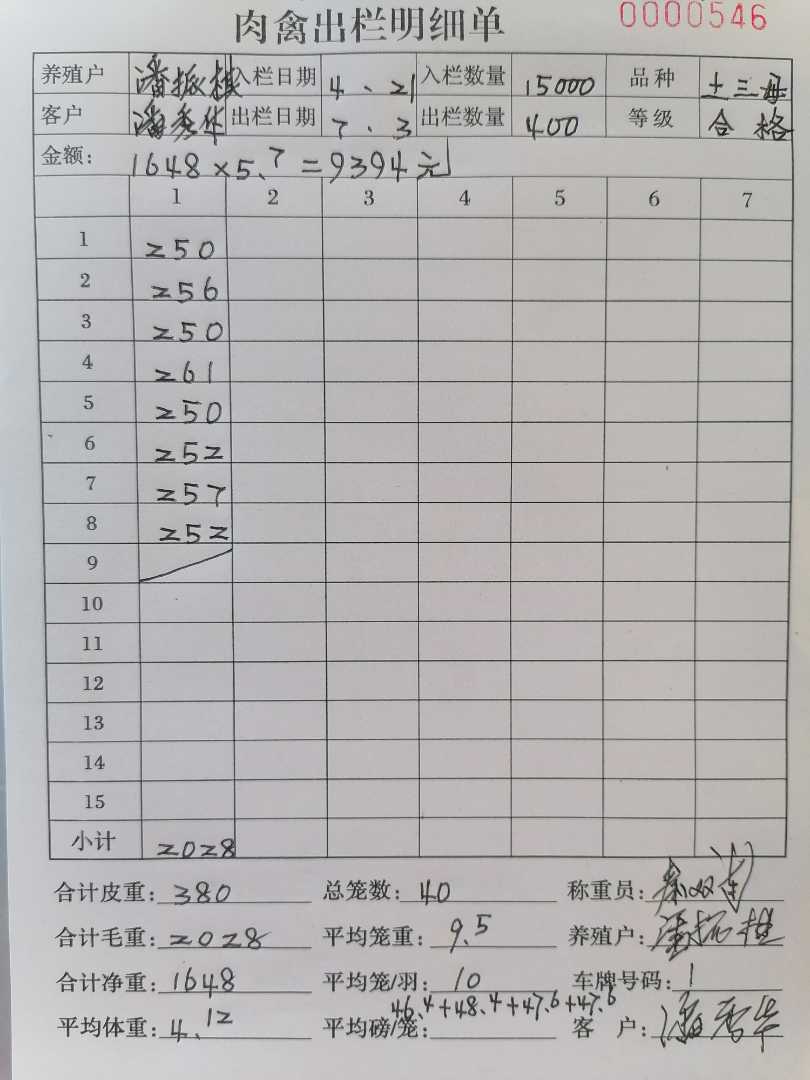 肉禽出栏明细单 0000546
养殖户 潘振 入栏日期 4、21 入栏数量 15000 品种 土三母
客户 潘秀华 出栏日期 7.3 出栏数量 400 等级 合格
金额: 1648×5.7=9394元
1 2 3 4 5 6 7
1 250
2 256
3 250
4 261
5 250
6 252
7 257
8 252
9
10
11
12
13
14
15
小计 2028
合计皮重: 380 总笼数: 40 称重员:
合计毛重: 2028 平均笼重: 9.5 养殖户: 潘振
合计净重: 1648 平均笼/羽: 10 车牌号码: 1
46.4+48.4+47.6+47.6
平均体重: 4.12 平均磅/笼: 客 户: 潘秀华